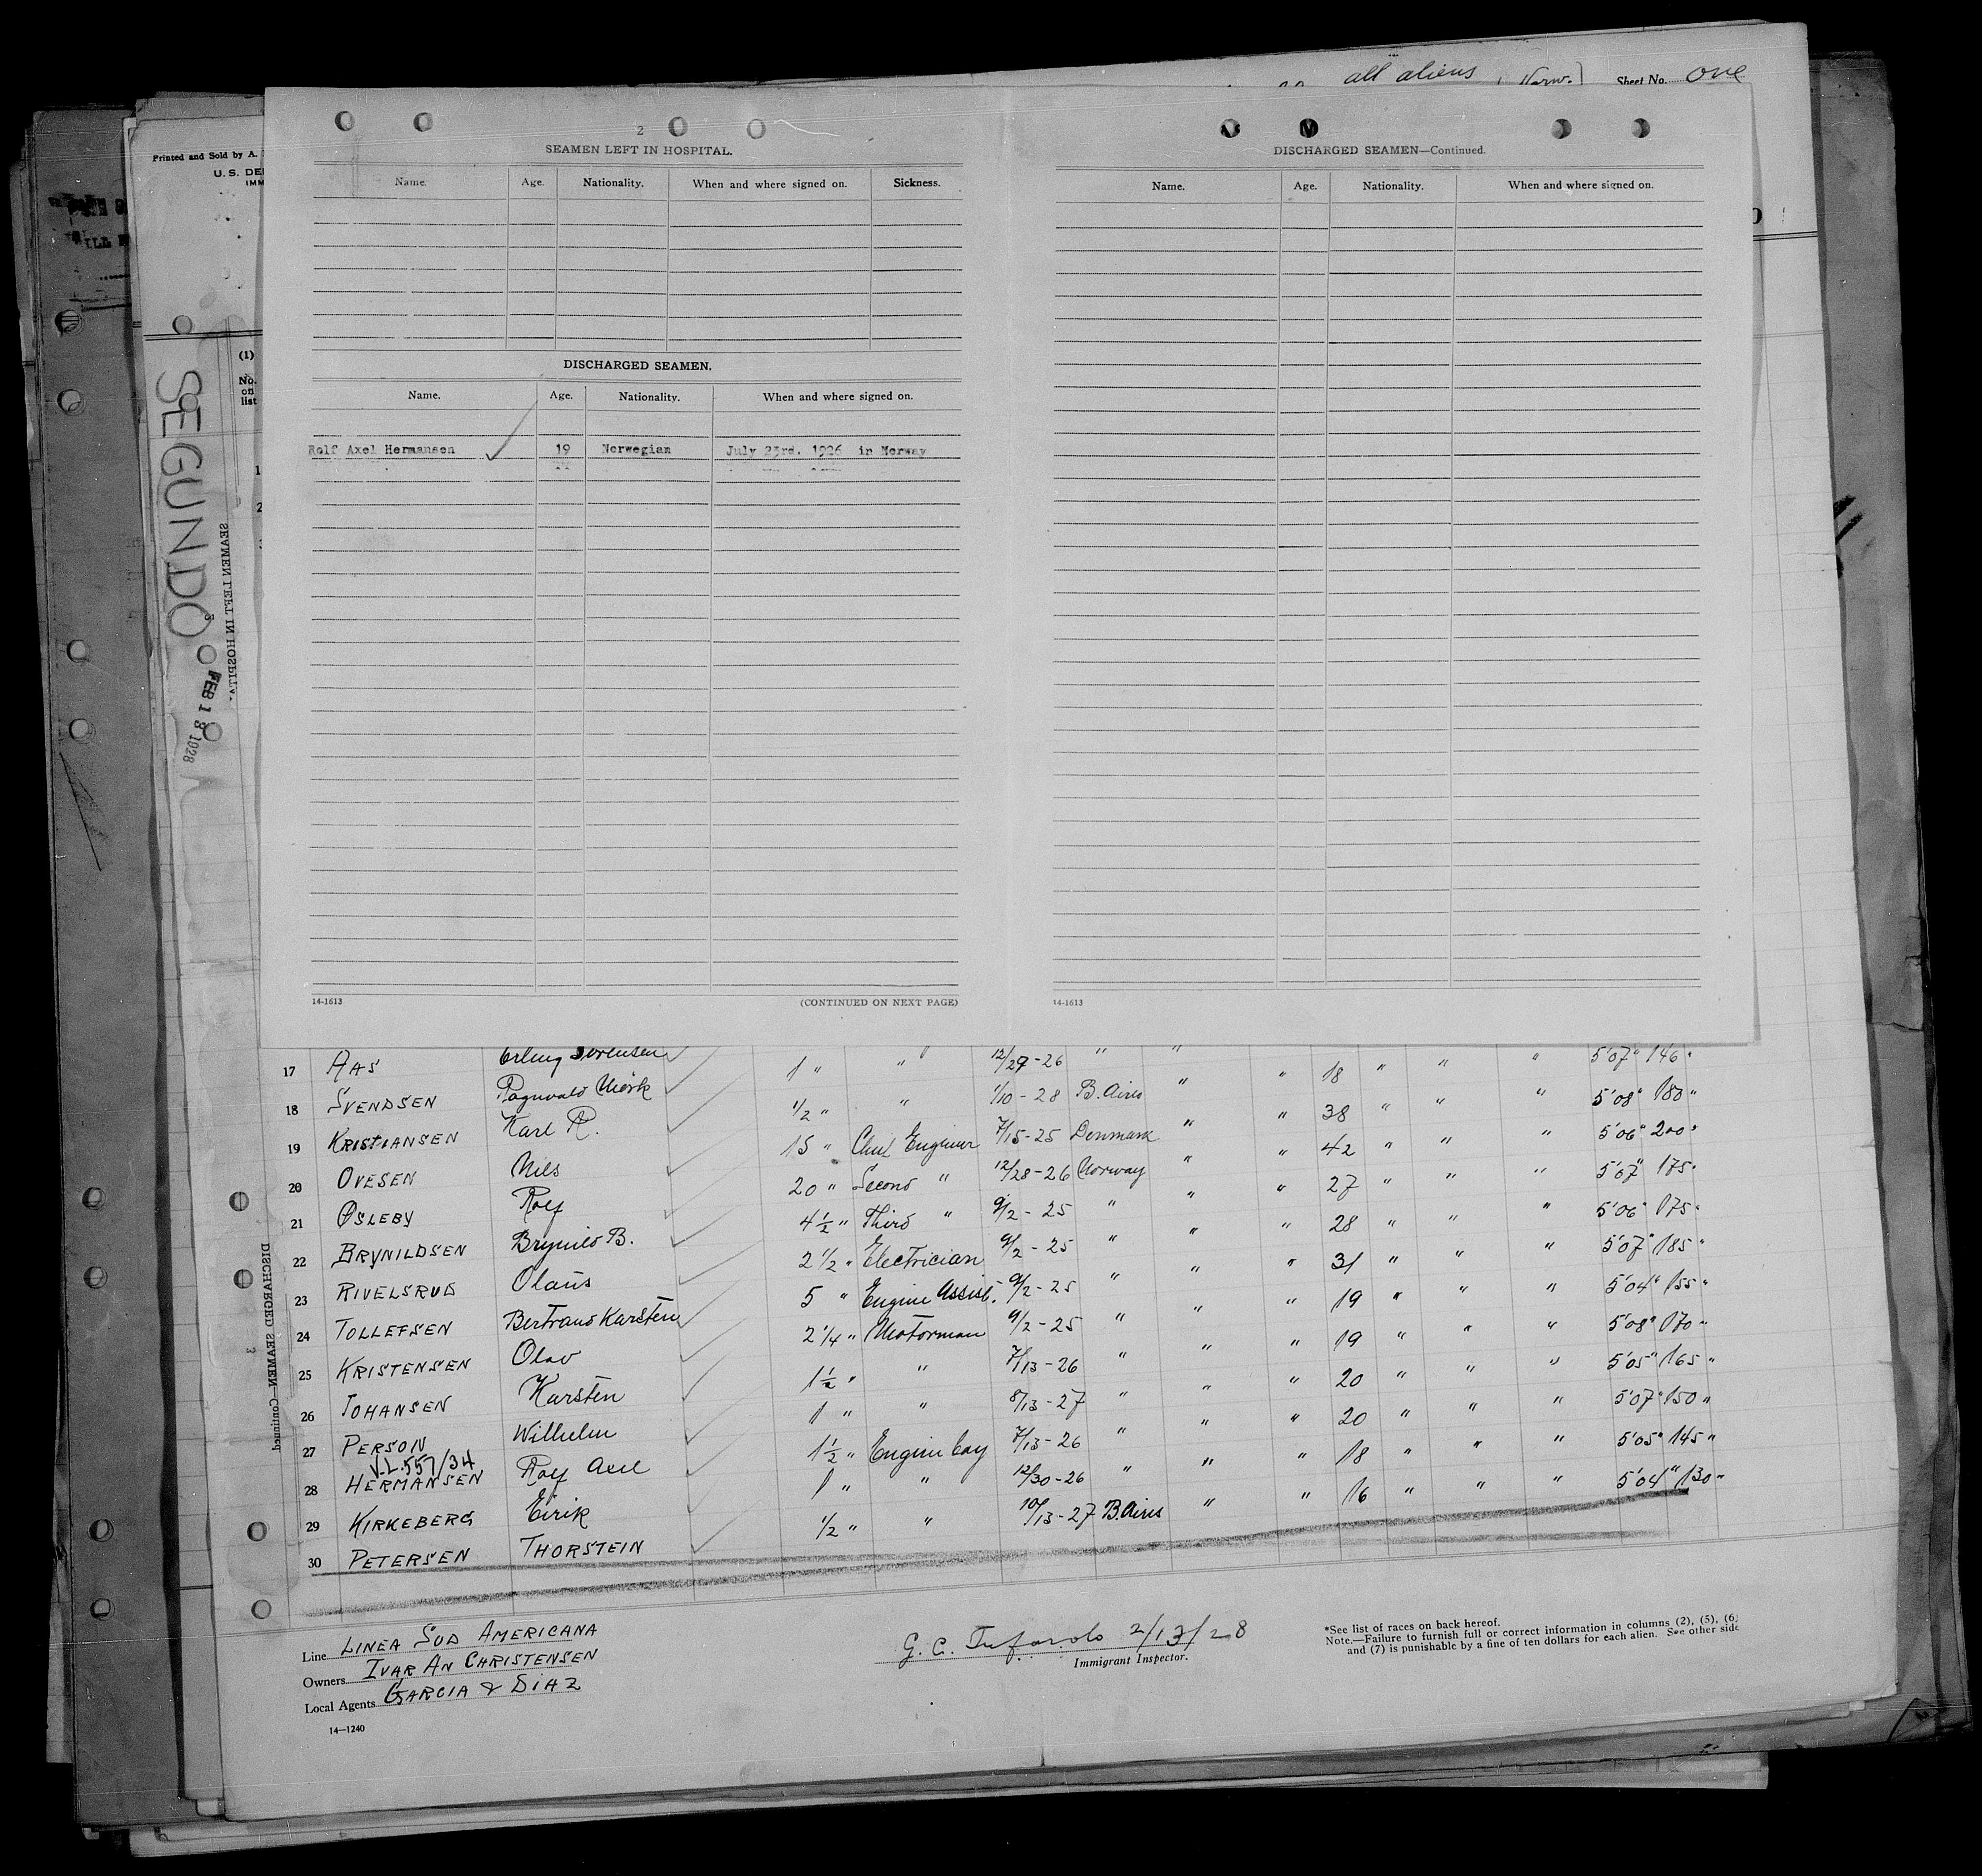 all aliens
Sheet No. one
Printed and Sold by A.
U. S. DE
IMM
SEGUNDO
FEB 13 1928
SEAMEN LEFT IN HOSPITA
(1)
No. on list
2
SEAMEN LEFT IN HOSPITAL.
Name. Age. Nationality. When and where signed on. Sickness.
DISCHARGED SEAMEN.
Name. Age. Nationality. When and where signed on.
Rolf Axel Hermansen 19 Norwegian July 23rd. 1926 in Norway
14-1613 (CONTINUED ON NEXT PAGE)
DISCHARGED SEAMEN—Continued.
Name. Age. Nationality. When and where signed on.
14-1613
DISCHARGED SEAMEN—Continued
3
17 AAS Erling Sorensen 1 " " 12/29-26 " " " 18 " " " 5'07" 146"
18 SVENDSEN Ragnvald Mörk 1/2 " " 1/10-28 B. Aires " " 38 " " " 5'08" 180"
19 KRISTIANSEN Karl R. 15 " Chief Engineer 7/15-25 Denmark " " 42 " " " 5'06" 200"
20 OVESEN Nils 20 " Second " 12/28-26 Norway " " 27 " " " 5'07" 175"
21 OSLEBY Rolf 4 1/2 " Third " 9/2-25 " " " 28 " " " 5'06" 175"
22 BRYNILDSEN Brynild B. 2 1/2 " Electrician 9/2-25 " " " 31 " " " 5'07" 185"
23 RIVELSRUD Olaüs 5 " Engine Assist. 9/2-25 " " " 19 " " " 5'04" 155"
24 TOLLEFSEN Bertrand Karsten 2 1/4 " Motorman 9/2-25 " " " 19 " " " 5'08" 170"
25 KRISTENSEN Olav 1 1/2 " " 7/13-26 " " " 20 " " " 5'05" 165"
26 JOHANSEN Karsten 1 " " 8/13-27 " " " 20 " " " 5'07" 150"
27 PERSON Wilhelm 1 1/2 " Engine boy 7/13-26 " " " 18 " " " 5'05" 145"
V.L. 557/34
28 HERMANSEN Rolf Axel 1 " " 12/30-26 " " " 16 " " " 5'04" 130"
29 KIRKEBERG Eirik 1/2 " " 10/13-27 B. Aires "
30 PETERSEN THORSTEIN
Line LINEA SUD AMERICANA
Owners IVAR AN CHRISTENSEN
Local Agents GARCIA & DIAZ
14—1240
G. C. 2/13/28
Immigrant Inspector.
*See list of races on back hereof.
Note.—Failure to furnish full or correct information in columns (2), (5), (6)
and (7) is punishable by a fine of ten dollars for each alien. See other side